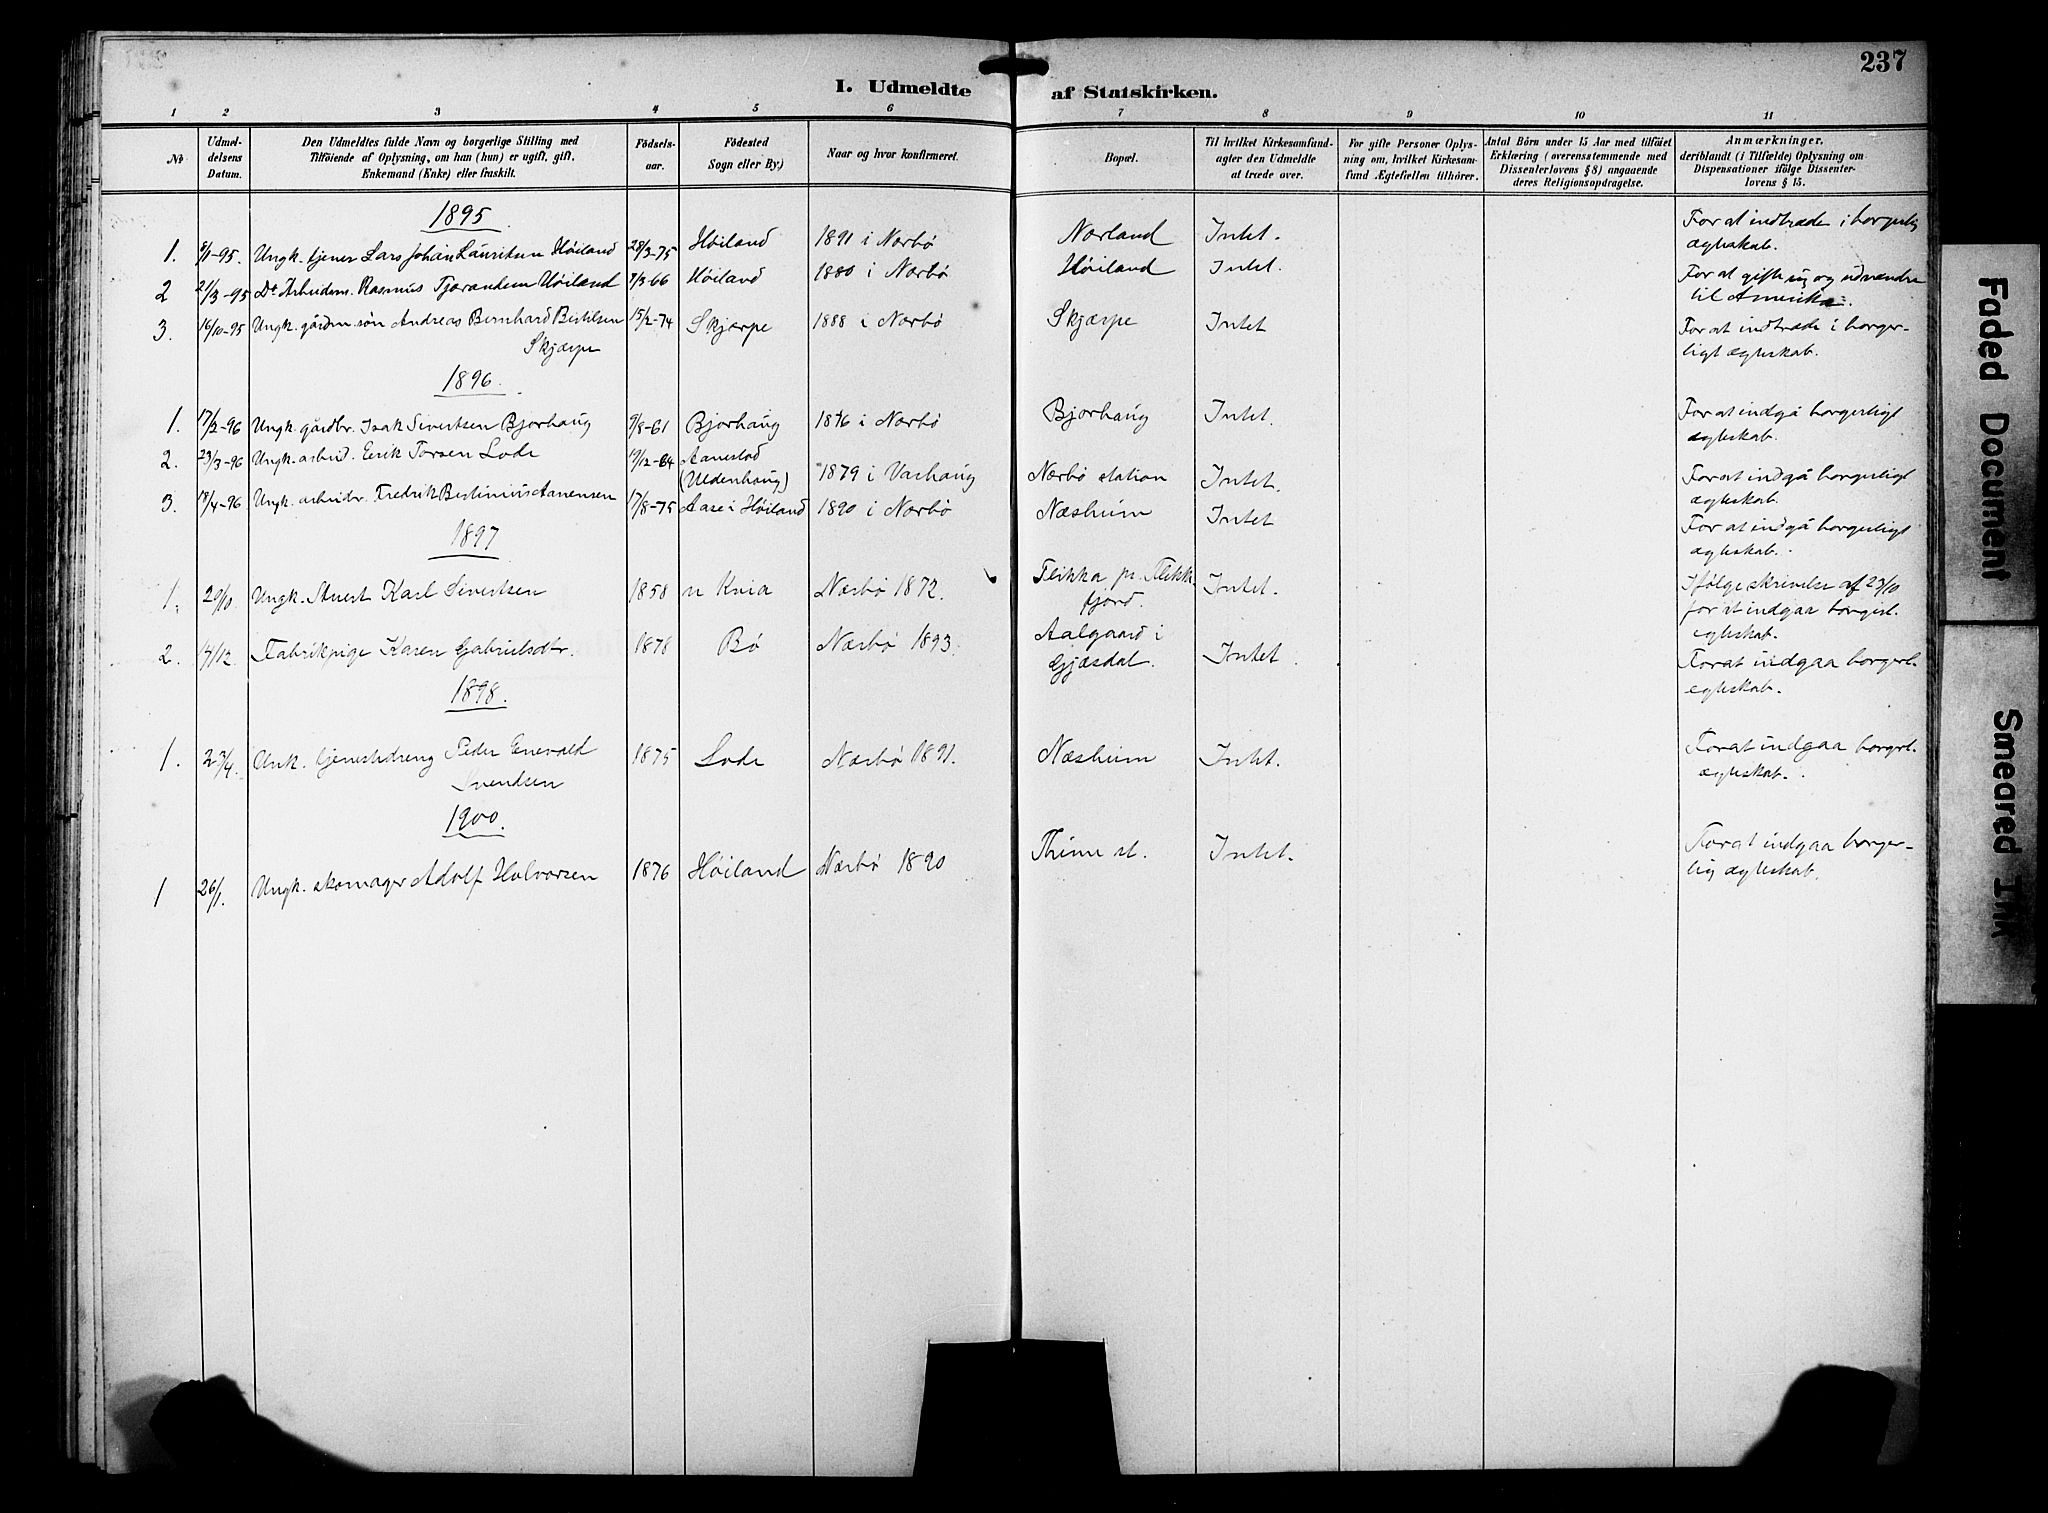 237
I. Udmeldte af Statskirken.
1 2 3 4 5 6 7 8 9 10 11
No
Udmel-
delsens
Datum.
Den Udmeldtes fulde Navn og borgerlige Stilling med
Tilföiende af Oplysning, om han (hun) er ugift, gift,
Enkemand (Enke) eller fraskilt.
Födsels-
aar.
Födested
Sogn eller By.)
Naar og hvor konfirmeret.
Bopæl.
Til hvilket Kirkesamfund
agter den Udmeldte
at træde over.
For gifte Personer Oplys-
ning om, hvilket Kirkesam-
fund Ægtefællen tilhörer.
Antal Börn under 15 Aar med tilföiet
Erklæring (overensstemmende med
Dissenterlovens § 8) angaaende
deres Religionsopdragelse.
Anmærkninger,
deriblandt (i Tilfælde) Oplysning om
Dispensationer ifölge Dissenter-
lovens § 15.
1895
1. 8/1-95. Ungk. tjener Lars Johan Lauritsen Høiland 28/3-75 Høiland 1891 i Nærbø Nærland Intet. For at indtræde i borgerlig
ægteskab.
2 21/3-95 Do Arbeidsm. Rasmus Tjerandsen Høiland 9/3-66 Høiland 1880 i Nærbø Høiland Intet. For at gifte sig og udvandre
til Amerika.
3. 16/10-95 Ungk. gårdm. søn Andreas Bernhard Bertelsen 15/2-74 Skjærpe 1888 i Nærbø Skjærpe Intet For at indtræde i borger-
Skjærpe ligt ægteskab.
1896.
1. 17/2-96 Ungk. gårdbr. Isak Sivertsen Bjorhaug 9/8-61 Bjorhaug 1876 i Nærbø Bjorhaug Intet. For at indgå borgerligt
ægteskab.
2. 23/3-96 Ungk. arbeid. Eerik Torsen Lode 19/12-64 Aanestad
(Udenhaug) 1879 i Varhaug Nærbø station Intet. For at indgå borgerligt
ægteskab.
3. 18/4-96 Ungk. arbeidr. Fredrik Bertinius Aanensen 17/8-75 Aase i Høiland 1890 i Nærbø Næsheim Intet For at indgå borgerligt
ægteskab.
1897
1. 29/10. Ungk. Stuert Karl Sivertsen 1858 n Kvia Nærbø 1872. Flikka pr. Flekke
fjord. Intet. Ifølge skrivelse af 23/10
for at indgaa borgerl.
egteskab.
2. 14/12 Fabrikpige Karen Gabrielsdtr. 1878 Bø Nærbø 1893. Aalgaard i
Gjæsdal. Intet. For at indgaa borgerl.
egteskab.
1898.
1. 23/4. Unk. tjenestedreng Peder Enevald 1875 Lode Nærbø 1891. Næsheim Intet. For at indgaa borgrl.
Svendsen ægteskab.
1900.
1 26/1. Ungk. skomager Adolf Halvorsen 1876 Høiland Nærbø 1890 Thime st. Intet. For at indgaa borger-
lig ægteskab.
Faded Document
Smeared Ink